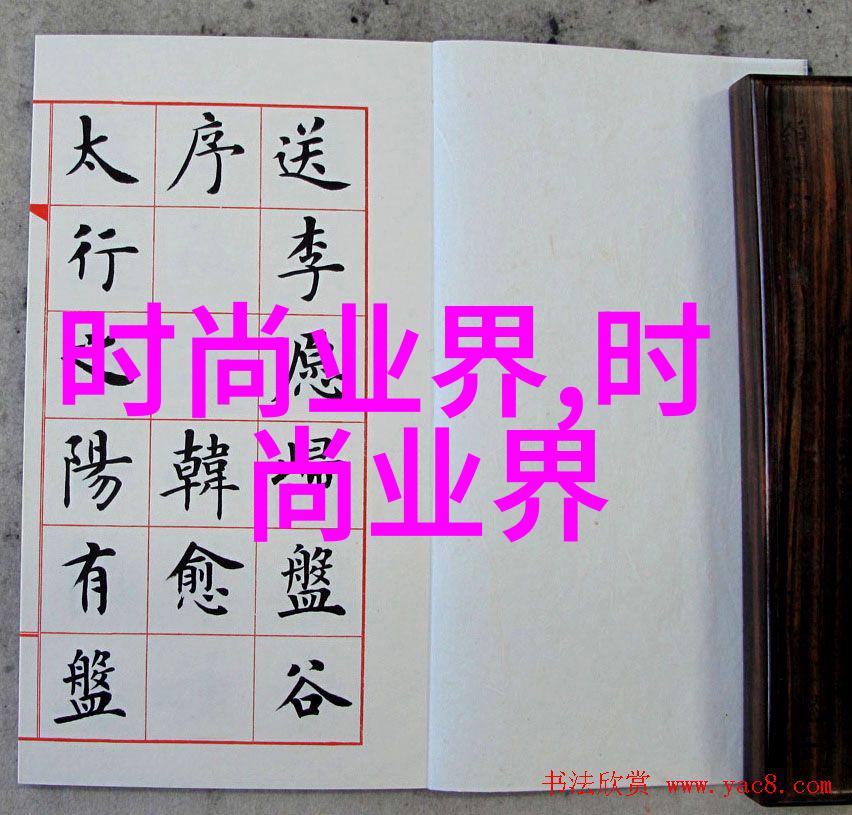 送李愿歸盤谷
序 韓愈
太行之陽有盤
时尚业界,时
尚业界
书法欣赏 www.yac8.com